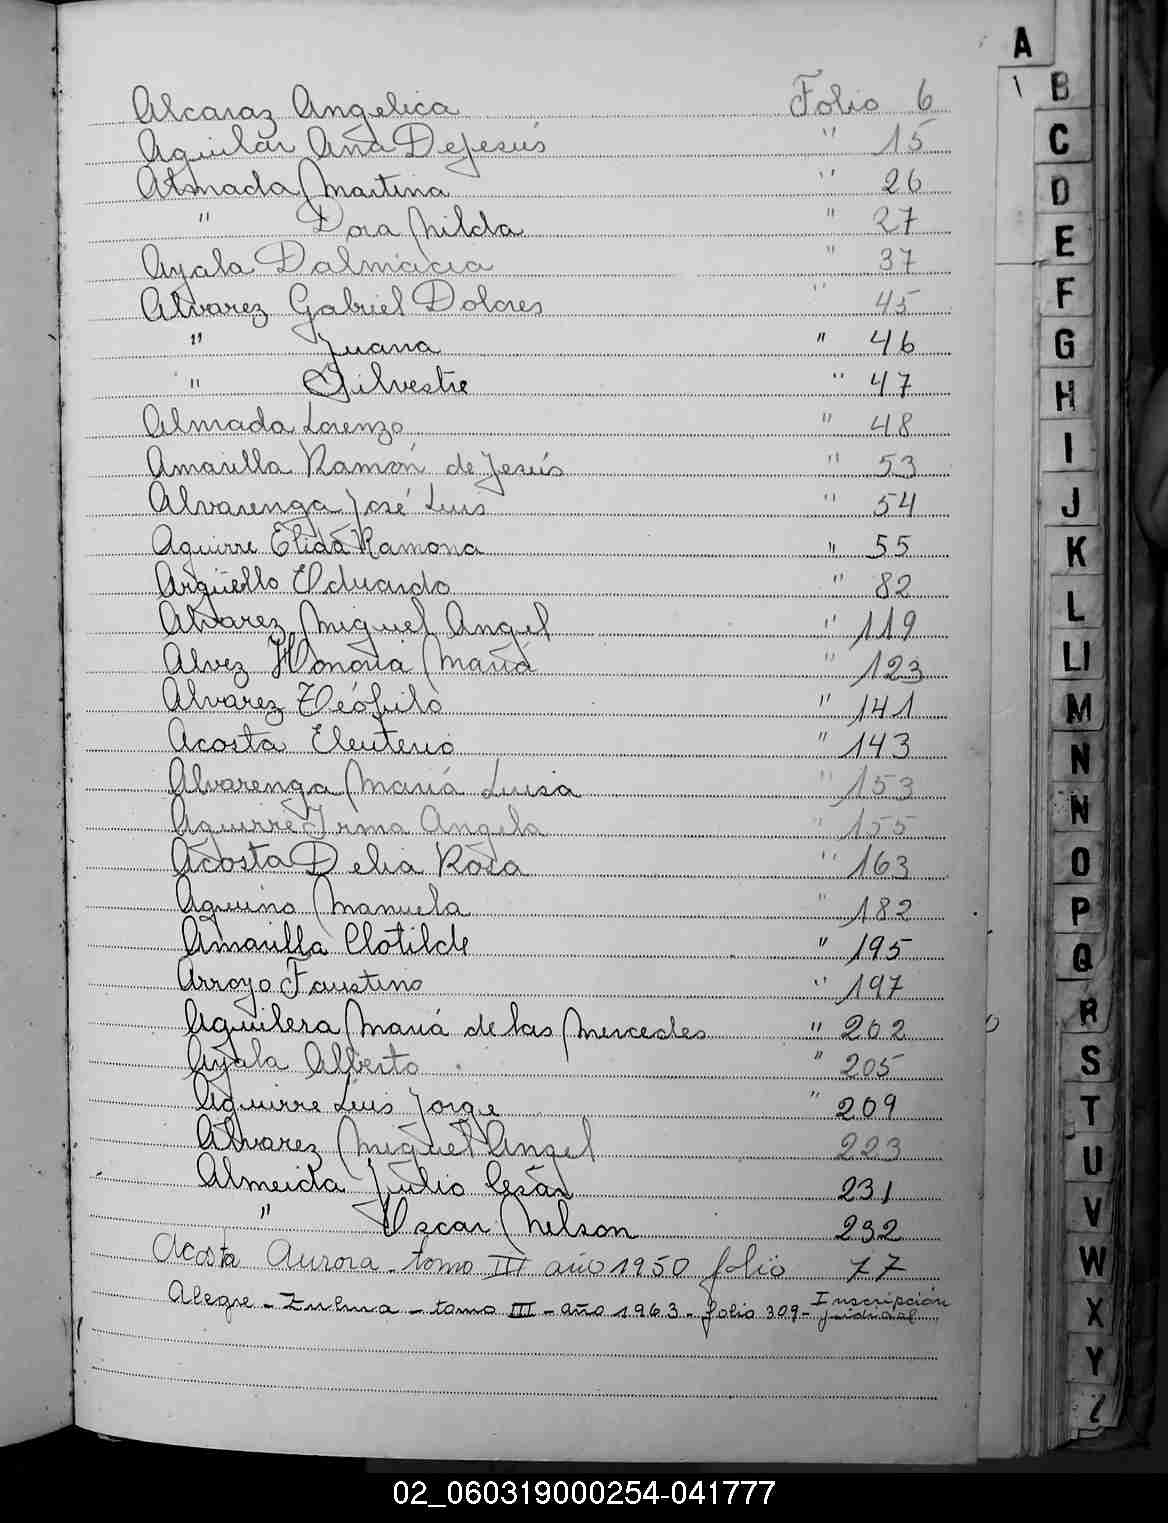 A
Alcaraz Angelica Folio 6
Aguilar Ana De Jesús " 15
Almada Martina " 26
" Dora Nilda " 27
Ayala Dalmacia " 37
Alvarez Gabriel Dolores " 45
" Juana " 46
" Silvestre " 47
Almada Lorenzo " 48
Amarilla Ramón de Jesús " 53
Alvarenga José Luis " 54
Aguirre Elida Ramona " 55
Argüello Eduardo " 82
Alvarez Miguel Angel " 119
Alvez Honoria María " 123
Alvarez Teófilo " 141
Acosta Eleuterio " 143
Alvarenga María Luisa " 153
Aguirre Irma Angela " 155
Acosta Delia Rosa " 163
Aquino Manuela " 182
Amarilla Clotilde " 195
Arroyo Faustino " 197
Aguilera María de las Mercedes " 202
Ayala Alberto " 205
Aguirre Luis Jorge " 209
Alvarez Miguel Angel 223
Almeida Julio Cesár 231
" Oscar Nelson 232
Acosta Aurora - tomo III año 1950 folio 77
Alegre - Zulma - tomo III - año 1963 - folio 309 - Inscripción judicial
B
C
D
E
F
G
H
I
J
K
L
Ll
M
N
N
O
P
Q
R
S
T
U
V
W
X
Y
Z
02_060319000254-041777